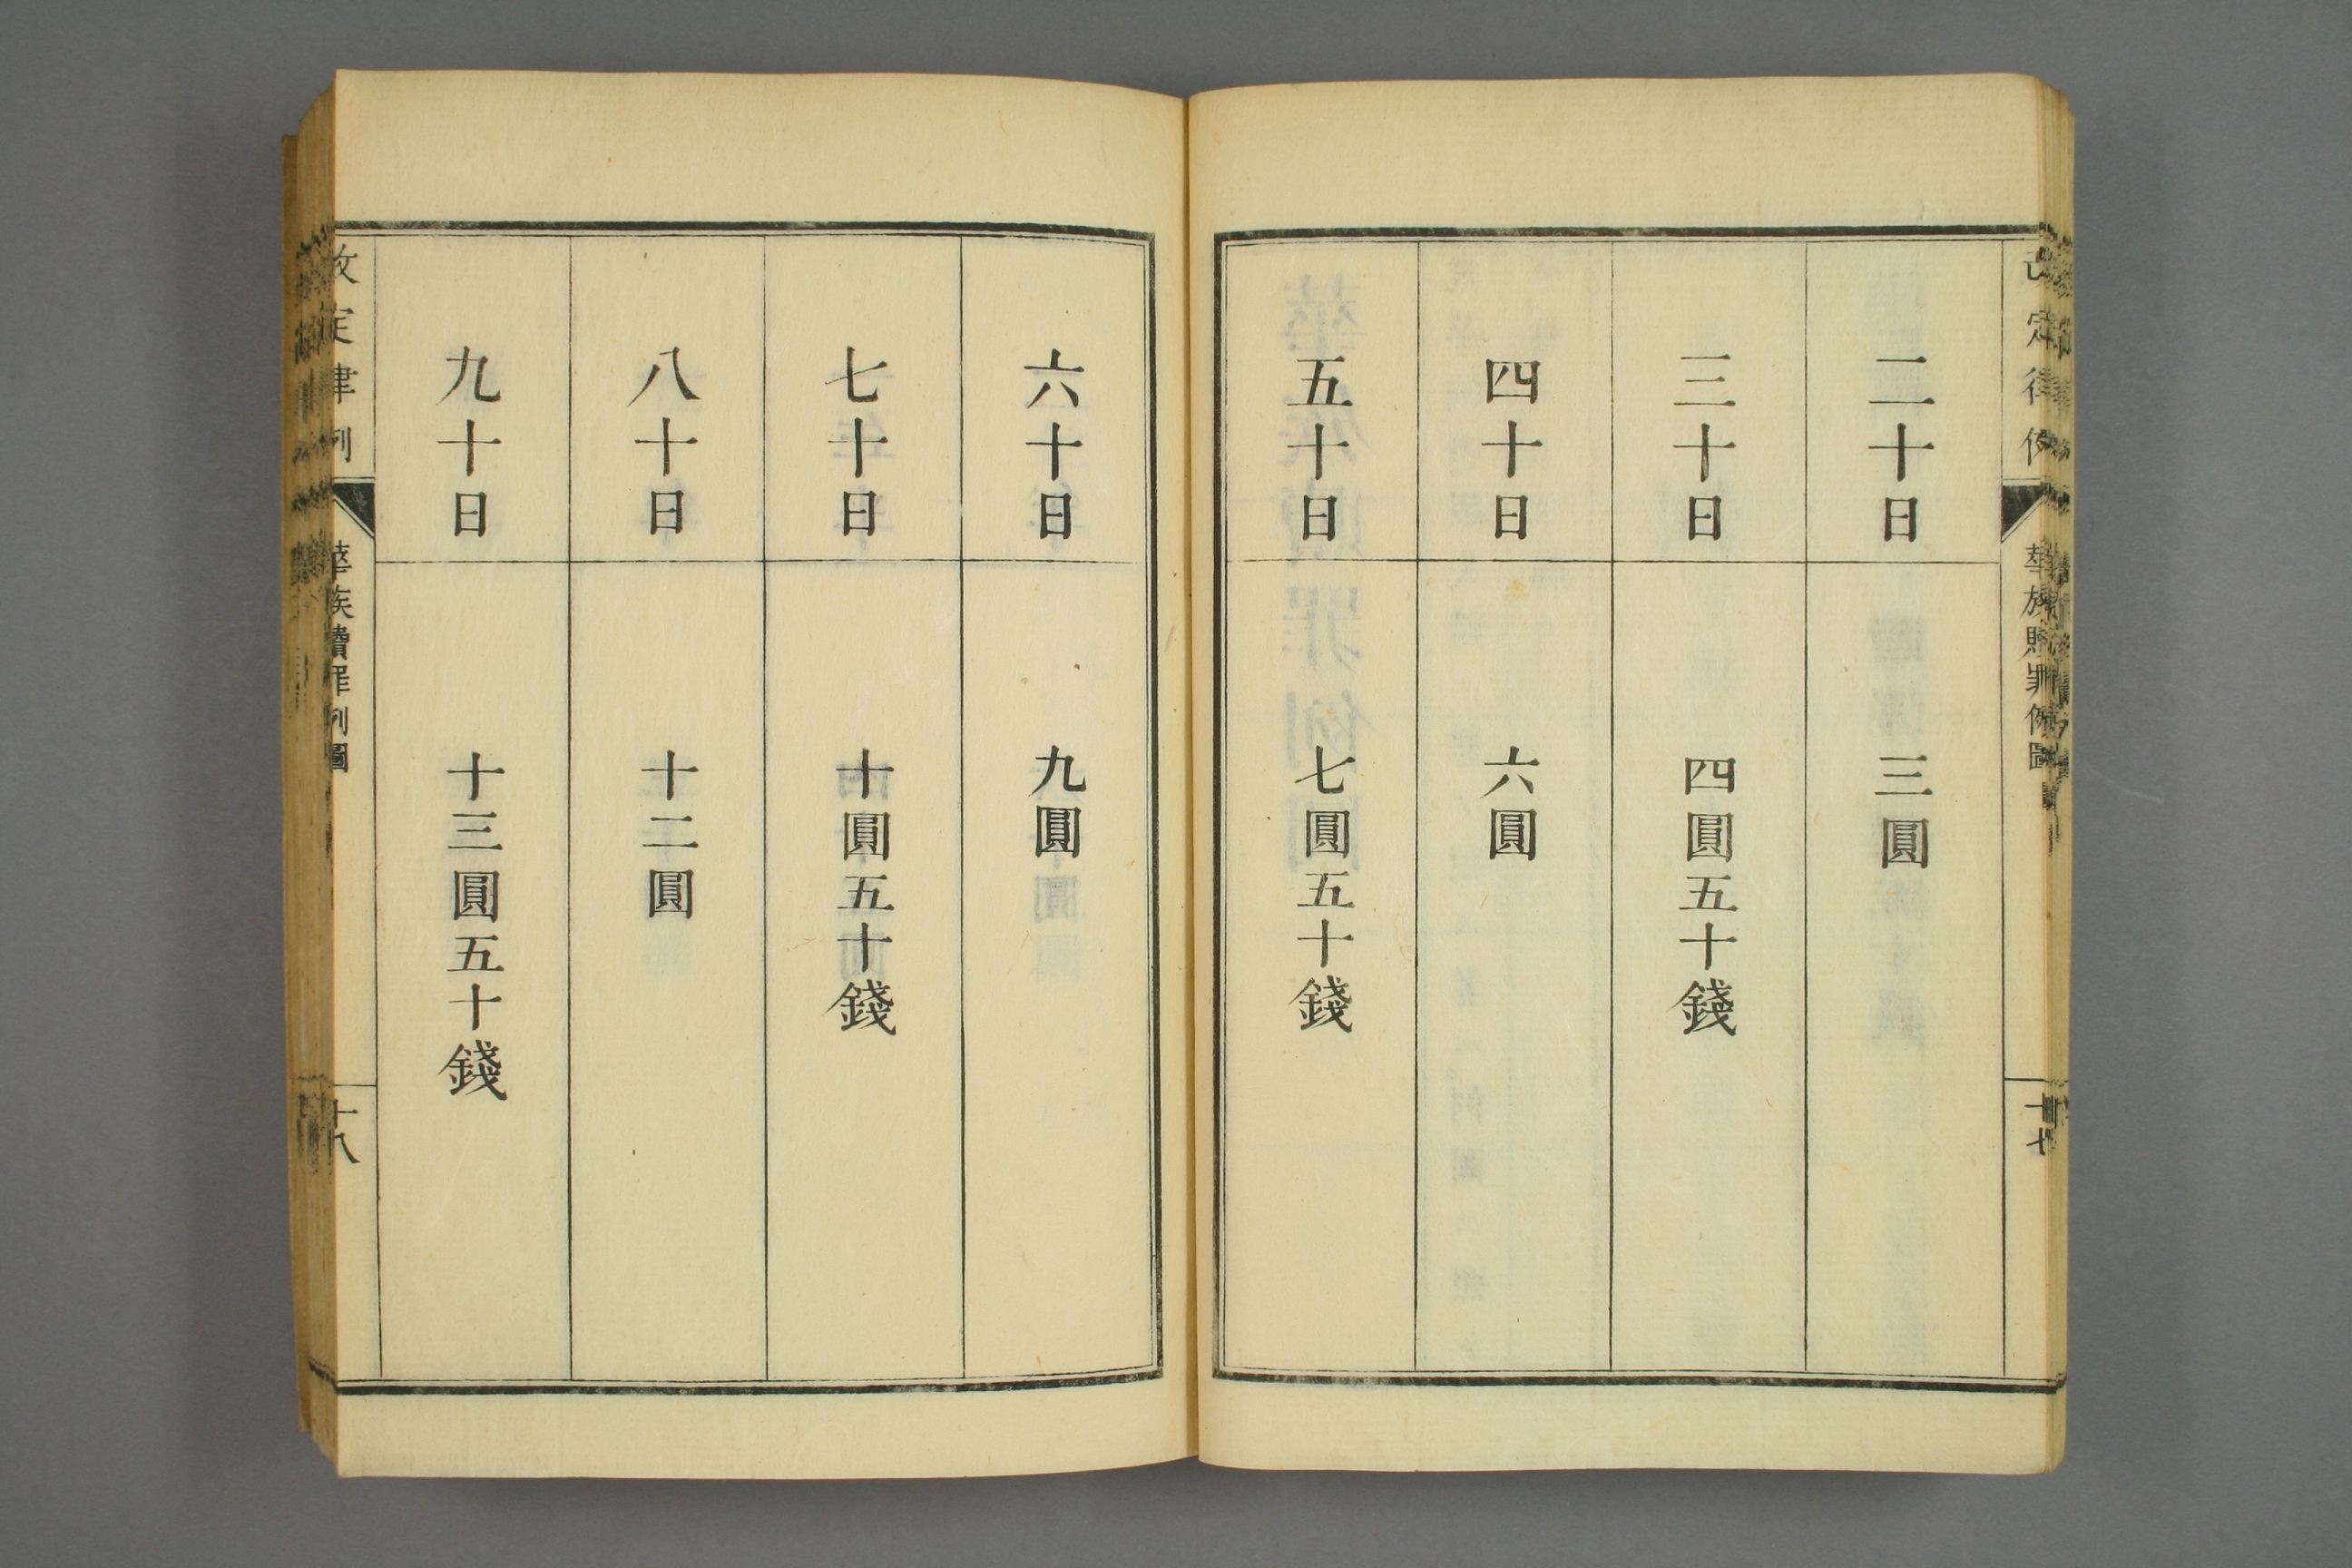 改定律例
華族贖罪例圖
十七
二十日
三圓
三十日
四圓五十錢
四十日
六圓
五十日
七圓五十錢
六十日
九圓
七十日
十圓五十錢
八十日
十二圓
九十日
十三圓五十錢
改定律例
華族贖罪例圖
十八